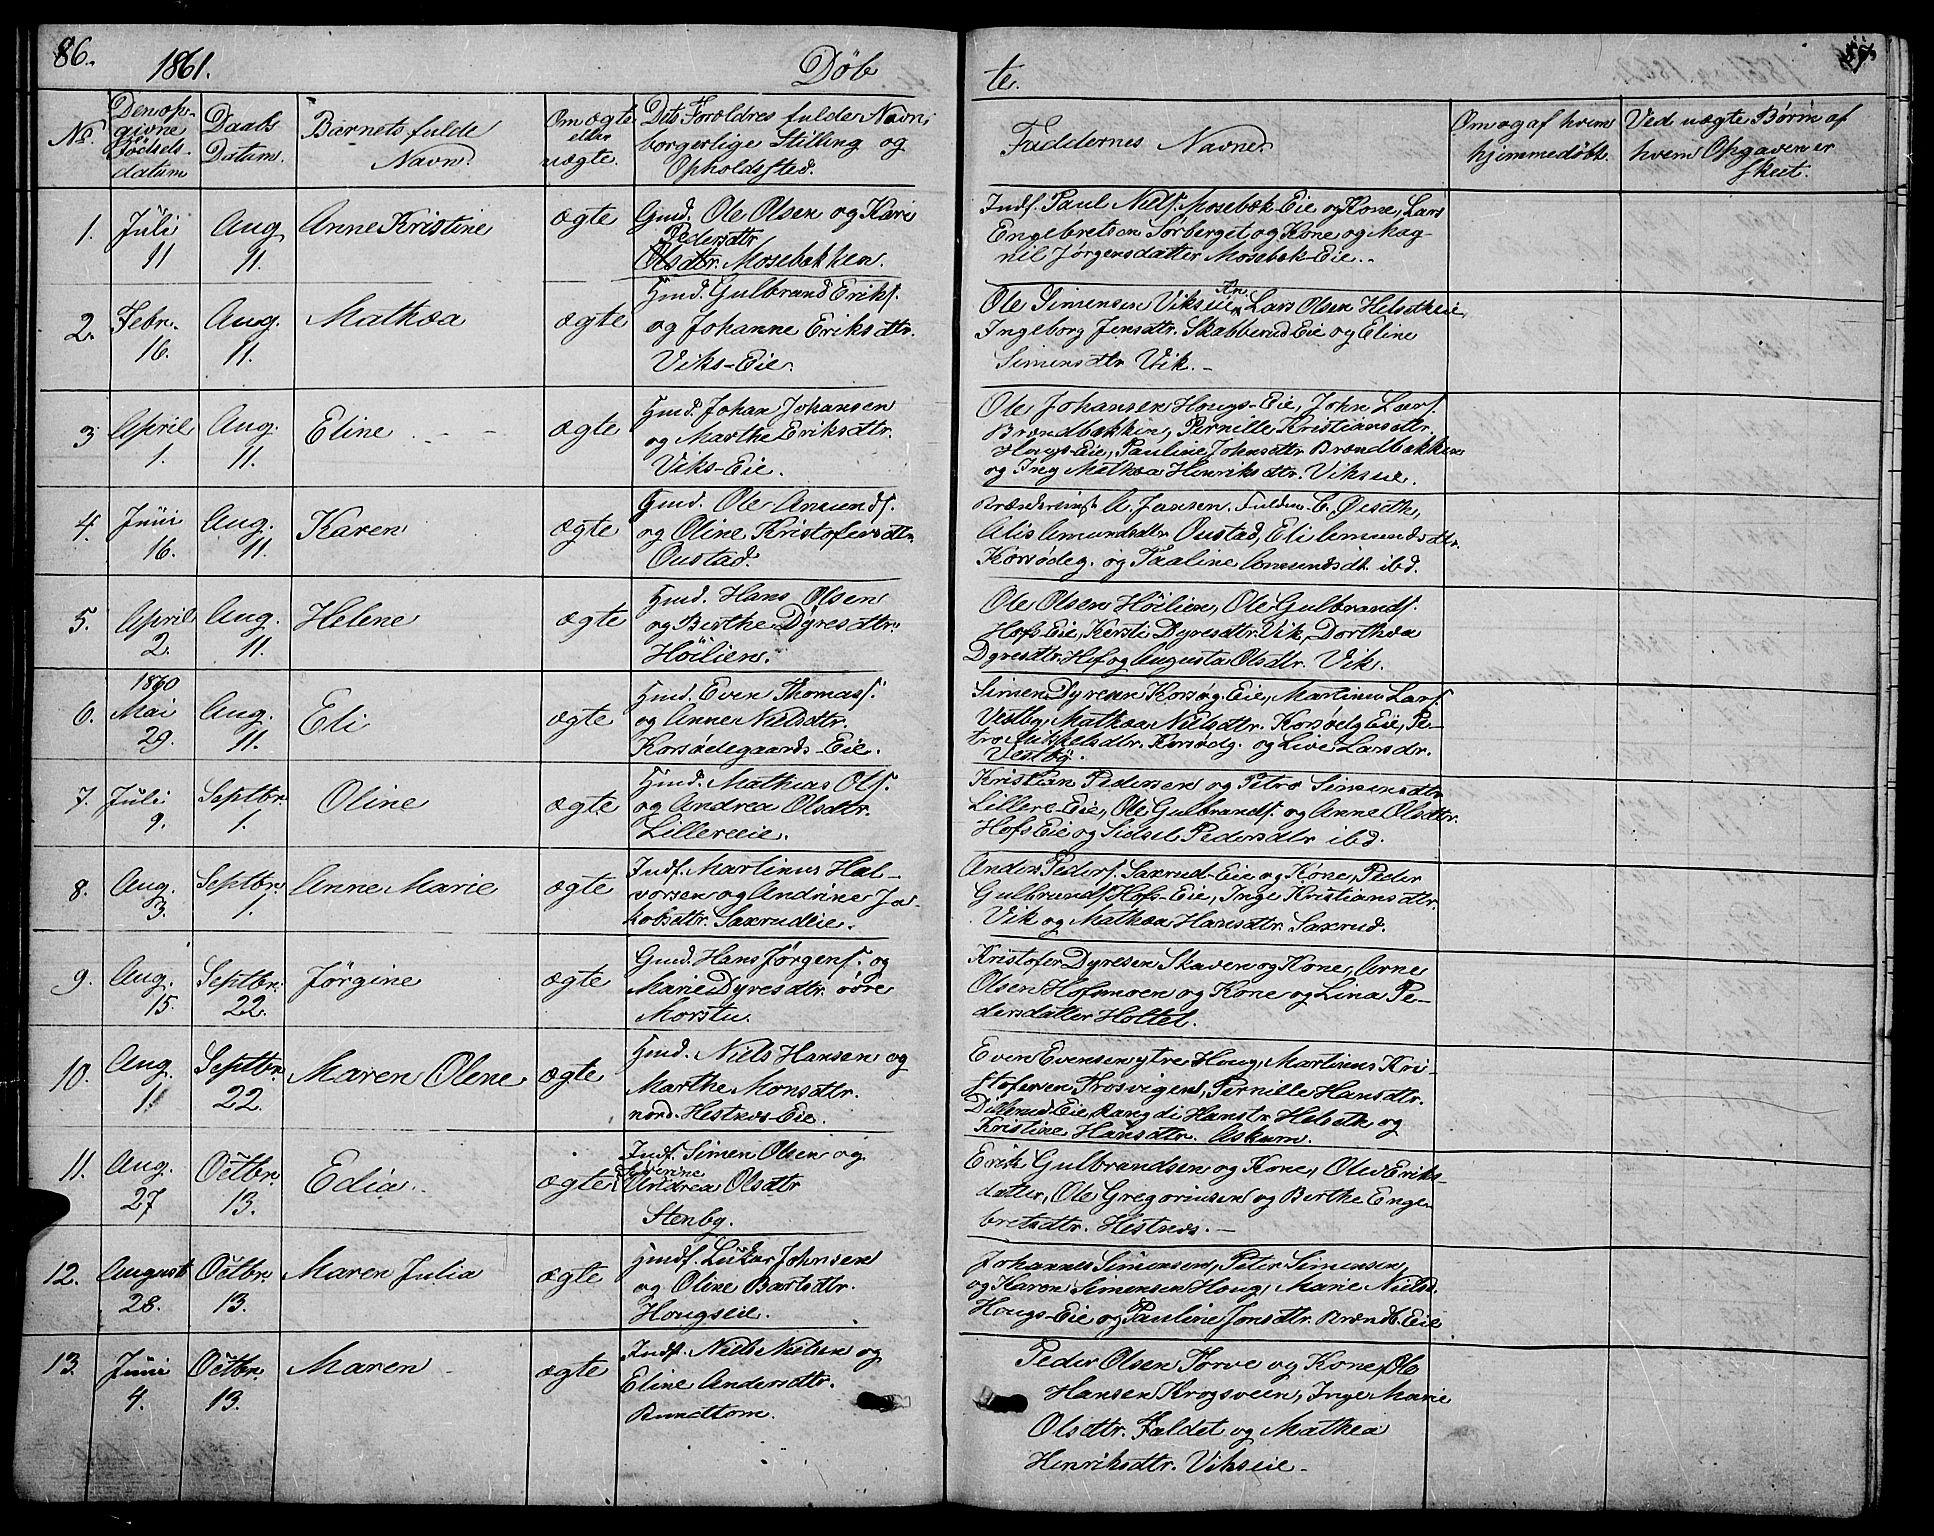 86.
1861.
Døb
te.
No.
Den op-
givne
Fødsels-
datum
Daabs
Datum.
Barnets fulde
Navn.
Om ægte
eller
uægte.
Dets Forældres fulde Navn,
borgerlige Stilling og
Opholdssted.
Faddernes Navne.
Om og af hvem
hjemmedøbt.
Ved uægte Børn af
hvem Opgaven er
skeet.
1.
Juli
11
Aug
11.
Anne Kristine
ægte
Gmd. Ole Olsen og Kari
Pedersdtr
Olsdtr. Mosebakken.
Indf. Paul Niels. Mosebæk Eie og Kone, Lars
Engebretsen Sorberget og Kone og Mag-
nil Jørgensdatter Mosebæk-Eie.
2.
Febr.
16.
Aug.
11.
Mathea
ægte
Hmd. Gulbrand Eriks.
og Johanne Eriksdtr.
Viks-Eie.
Ole Simensen Vikseie, Lars Olsen Helsetheie
Ingeborg Jensdtr. Skabberud Eie og Eline
Simensdtr Vik.
3
April
1.
Aug.
11.
Eline
ægte
Hmd. Johan Johansen
og Marthe Eriksdtr.
Viks-Eie.
Ole Johansen Hougs-Eie, John Lars.
Brændbakken, Pernille Kristiansdtr.
Hougs-Eie, Pauline Johnsdtr. Brændbakken
og Ing Mathea Henriksdtr. Vikseie.
4.
Juni
16.
Aug.
11.
Karen
ægte
Gmd. Ole Amunds.
og Oline Kristofersdtr.
Oustad.
A. Jansen.
Amundsdtr Oustad, Eli Amundsdtr.
Korsødeg. og Paaline Amundsdt. ibd.
5.
April
2.
Aug.
11.
Helene
ægte
Hmd. Hans Olsen
og Birthe Dyresdtr.
Høilien.
Ole Olsen Høilien, Ole Gulbrands.
Hofs Eie, Kersti Dyresdtr. Vik, Dorthea
Dyresdtr. Hof og Augusta Olsdtr. Vik.
6.
1860
Mai
29.
Aug.
11.
Eli
ægte
Hmd. Even Thomas.
og Anne Nielsdtr.
Korsødegaards-Eie.
Simen Dyresen Korsøg. Eie, Martinus Lars.
Vestby, Mathea Nielsdtr. Korsøelg Eie, Pe-
tra Mikkelsdtr. Korsødg. og Live Larsdr.
Vestby.
7.
Juli
9.
Septbr.
1.
Oline
ægte
Hmd. Mathias Ols.
og Andrea Olsdtr.
Lillereeie.
Kristian Pedersen og Petra Simensdtr
Lillere-Eie, Ole Gulbrands. og Anne Olsdtr.
Hofs Eie og Sidsel Pedersdtr ibd.
8.
Aug.
3.
Septbr.
1.
Anne Marie
ægte
Indf. Martinus Hal-
vorsen og Andrine Ja-
kobsdtr. Saxrudeie.
Anders Peders. Saxrud-Eie og Kone, Peder
Gulbrands. Hofs-Eie, Inge Kristiansdtr.
Vik og Mathea Hansdtr. Saxrud.
9.
Aug.
15.
Septbr.
22.
Jørgine
ægte
Gmd. Hans Jørgens. og
Marie Dyresdtr. øvre
Morstu.
Kristofer Dyresen Skaven og Kone, Arne
Olsen Hofsmoen og Kone og Lina Pe-
dersdatter Holtet.
10.
Aug.
1.
Septbr.
22.
Maren Olene
ægte
Hmd. Niels Hansen og
Marthe Monsdtr.
nord. Hestnes-Eie.
Even Evensen ytre Houg, Martinus Kri-
stofersen Frosvigen, Pernille Hansdtr.
Dillerud Eie, Rangdi Hanstr. Helseth og
Kristine Hansdtr. Askum.
11.
Aug.
27
Octbr.
13.
Edia
ægte
Indf. Simen Olsen og
Severine
Andrea Olsdtr
Stenby.
Erik Gulbrandsen og Kone, Olea Eriks-
datter, Ole Gregoriusen og Berthe Enge-
bretsdtr. Hestnes.
12.
August
28.
Octbr.
13.
Maren Julia
ægte
Hmdf. Lukas Johnsen
og Oline Bartsdtr.
Hougseie.
Johannes Simensen, Peter Simensen
og Karen Simensen Houg, Marie Nielsd.
Hougs-Eie og Pauline Jonsdtr. Brændb. Eie
13.
Juni
4.
Octbr.
13.
Maren
ægte
Indf. Niels Nielsen og
Eline Andersdtr.
Rundtom.
Peder Olsen Torve og Kone, Ole
Hansen Krogsveen, Inge Marie
Olsdtr. Faldet og Mathea
Henriksdtr. Vikseie